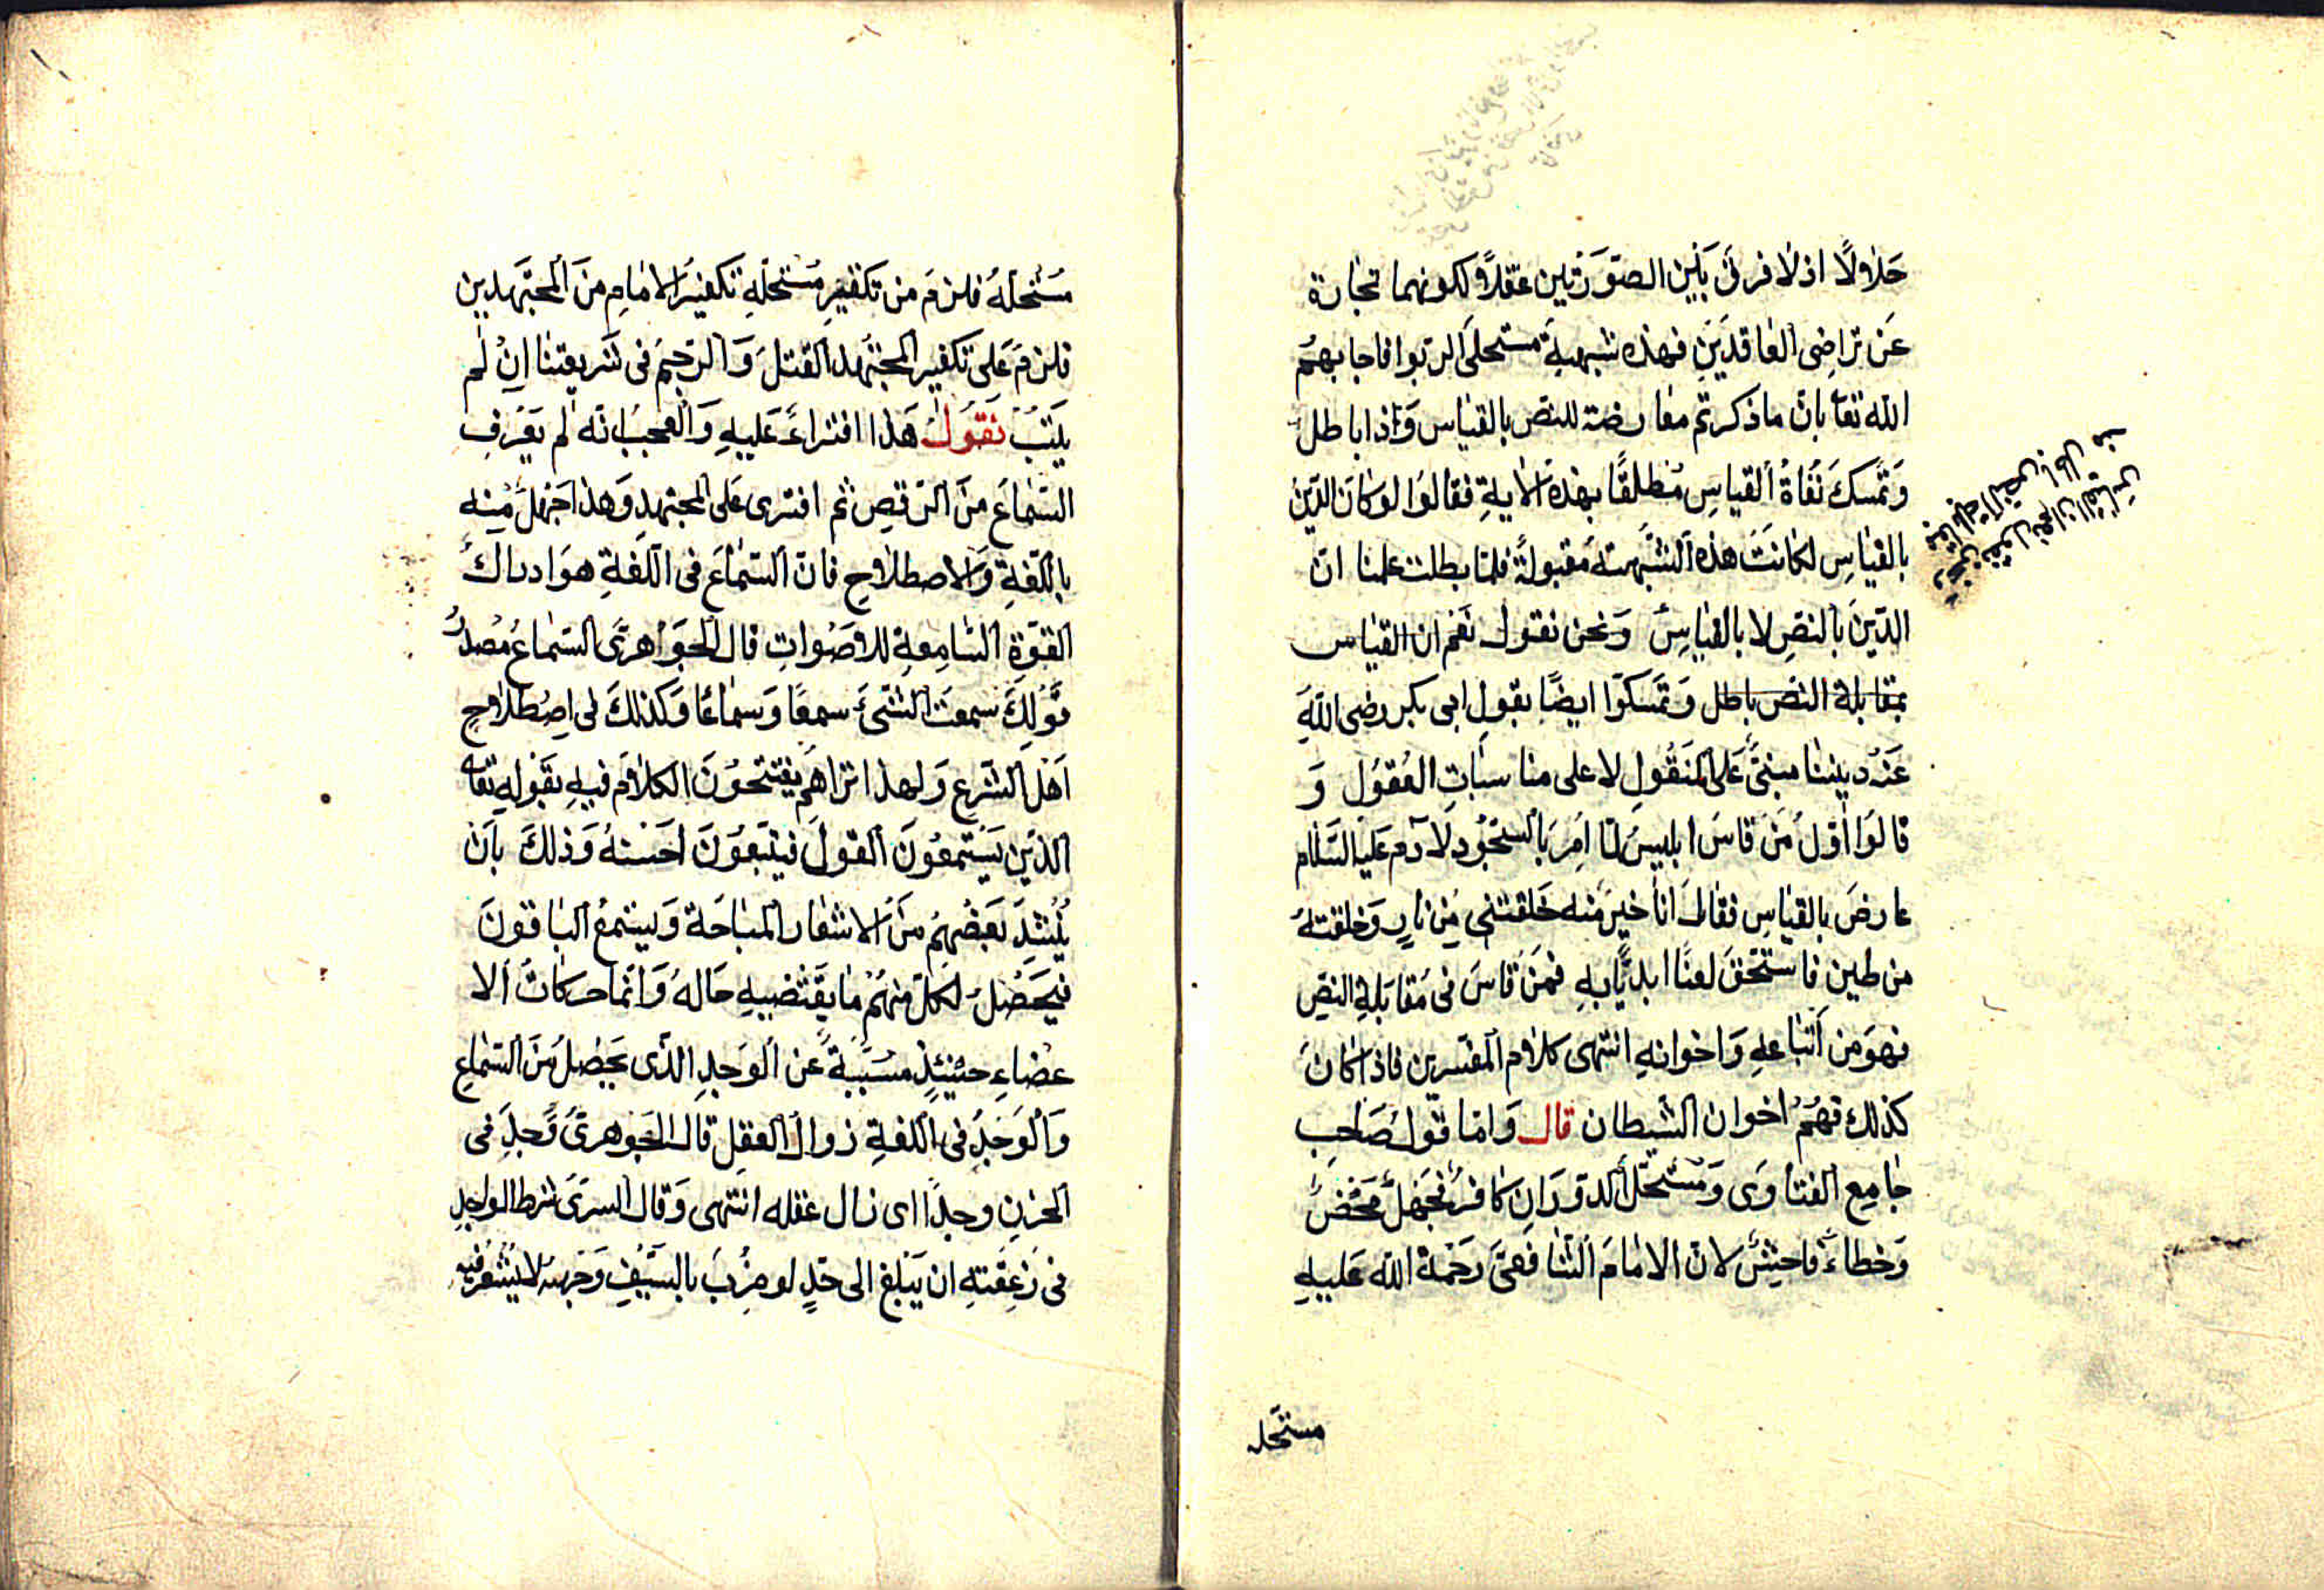 حلاولا اذ لا فرق بين الصورتين عقلا ولكونهما تجارة
عن تراضى العاقدين فهذه شبهة مستحلى الربوا فاجابهم
الله تعا بان ما ذكرتم معارضة للنص بالقياس وَاذا باطل
وتمسك نفاة القياس مطلقا بهذه الاية فقالوا لو كان الدين
بالقياس لكانت هذه الشبهة مقبولة فلما بطلت علمنا ان
الدين بالنص لا بالقياس ونحن نقول نعم ان القياس
بمقابلة النص باطل وتمسكوا ايضا بقول ابى بكر رضى الله
عنه ديننا مبنى على المنقول لا على مناسبات العقول و
قالوا اول من قاس ابليس لما امر بالسجود لآدم عليه السلام
عارض بالقياس فقال انا خير منه خلقتنى من نار وخلقته
من طين فاستحق لعنا ابديا به فمن قاس فى مقابلة النص
فهو من اتباعه واخوانه انتهى كلام المفسرين فاذا كان
كذلك فهم اخوان الشيطان قال واما قول صاحب
جامع الفتاوى ومستحل الدوران كافر فجهل محض
وخطاء فاحش لان الامام الشافعى رحمة الله عليه
مستحله
ونحن نقول نعم ان القياس
بمقابلة النص باطل
مستحله فلزم من تكفير مستحله تكفير الامام من المجتهدين
فلزم على تكفير المجتهد القتل والرجم فى شريعتنا ان لم
يتب نقول هذا افتراء عليه والعجب انه لم يعرف
السماع من الرقص ثم افترى على المجتهد وهذا جهل منه
باللغة والاصطلاح فان السماع فى اللغة هو ادراك
القوة السامعة للاصوات قال الجواهرى السماع مصدر
قولك سمعت الشىء سمعا وسماعا وكذلك فى اصطلاح
اهل الشرع ولهذا تراهم يفتتحون الكلام فيه بقوله تعا
الذين يستمعون القول فيتبعون احسنه وذلك بان
ينشد بعضهم من الاشعار المباحة ويستمع الباقون
فيحصل لكل منهم ما يقتضيه حاله وانما حركات الا
عضاء حينئذ مسببة عن الوجد الذى يحصل من السماع
والوجد فى اللغة زوال العقل قال الجوهرى وجد فى
الحزن وجدا اى زال عقله انتهى وقال السرى شرط الواجد
فى زعقته ان يبلغ الى حد لو ضرب بالسيف وجهه لا يشعر فيه